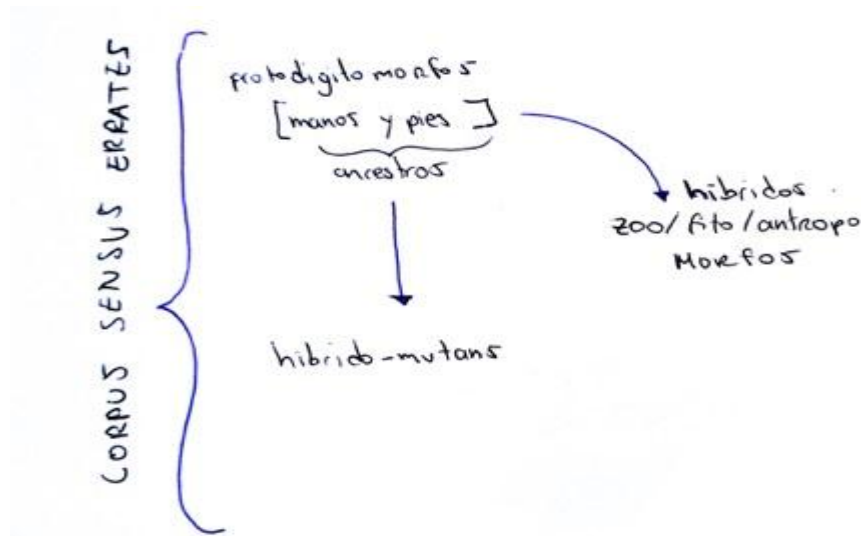 CORPUS SENSUS ERRATES
protodigitomorfos
[manos y pies]
ancestros
híbridos
zoo/fito/antropo
MORFOS
híbrido-mutans